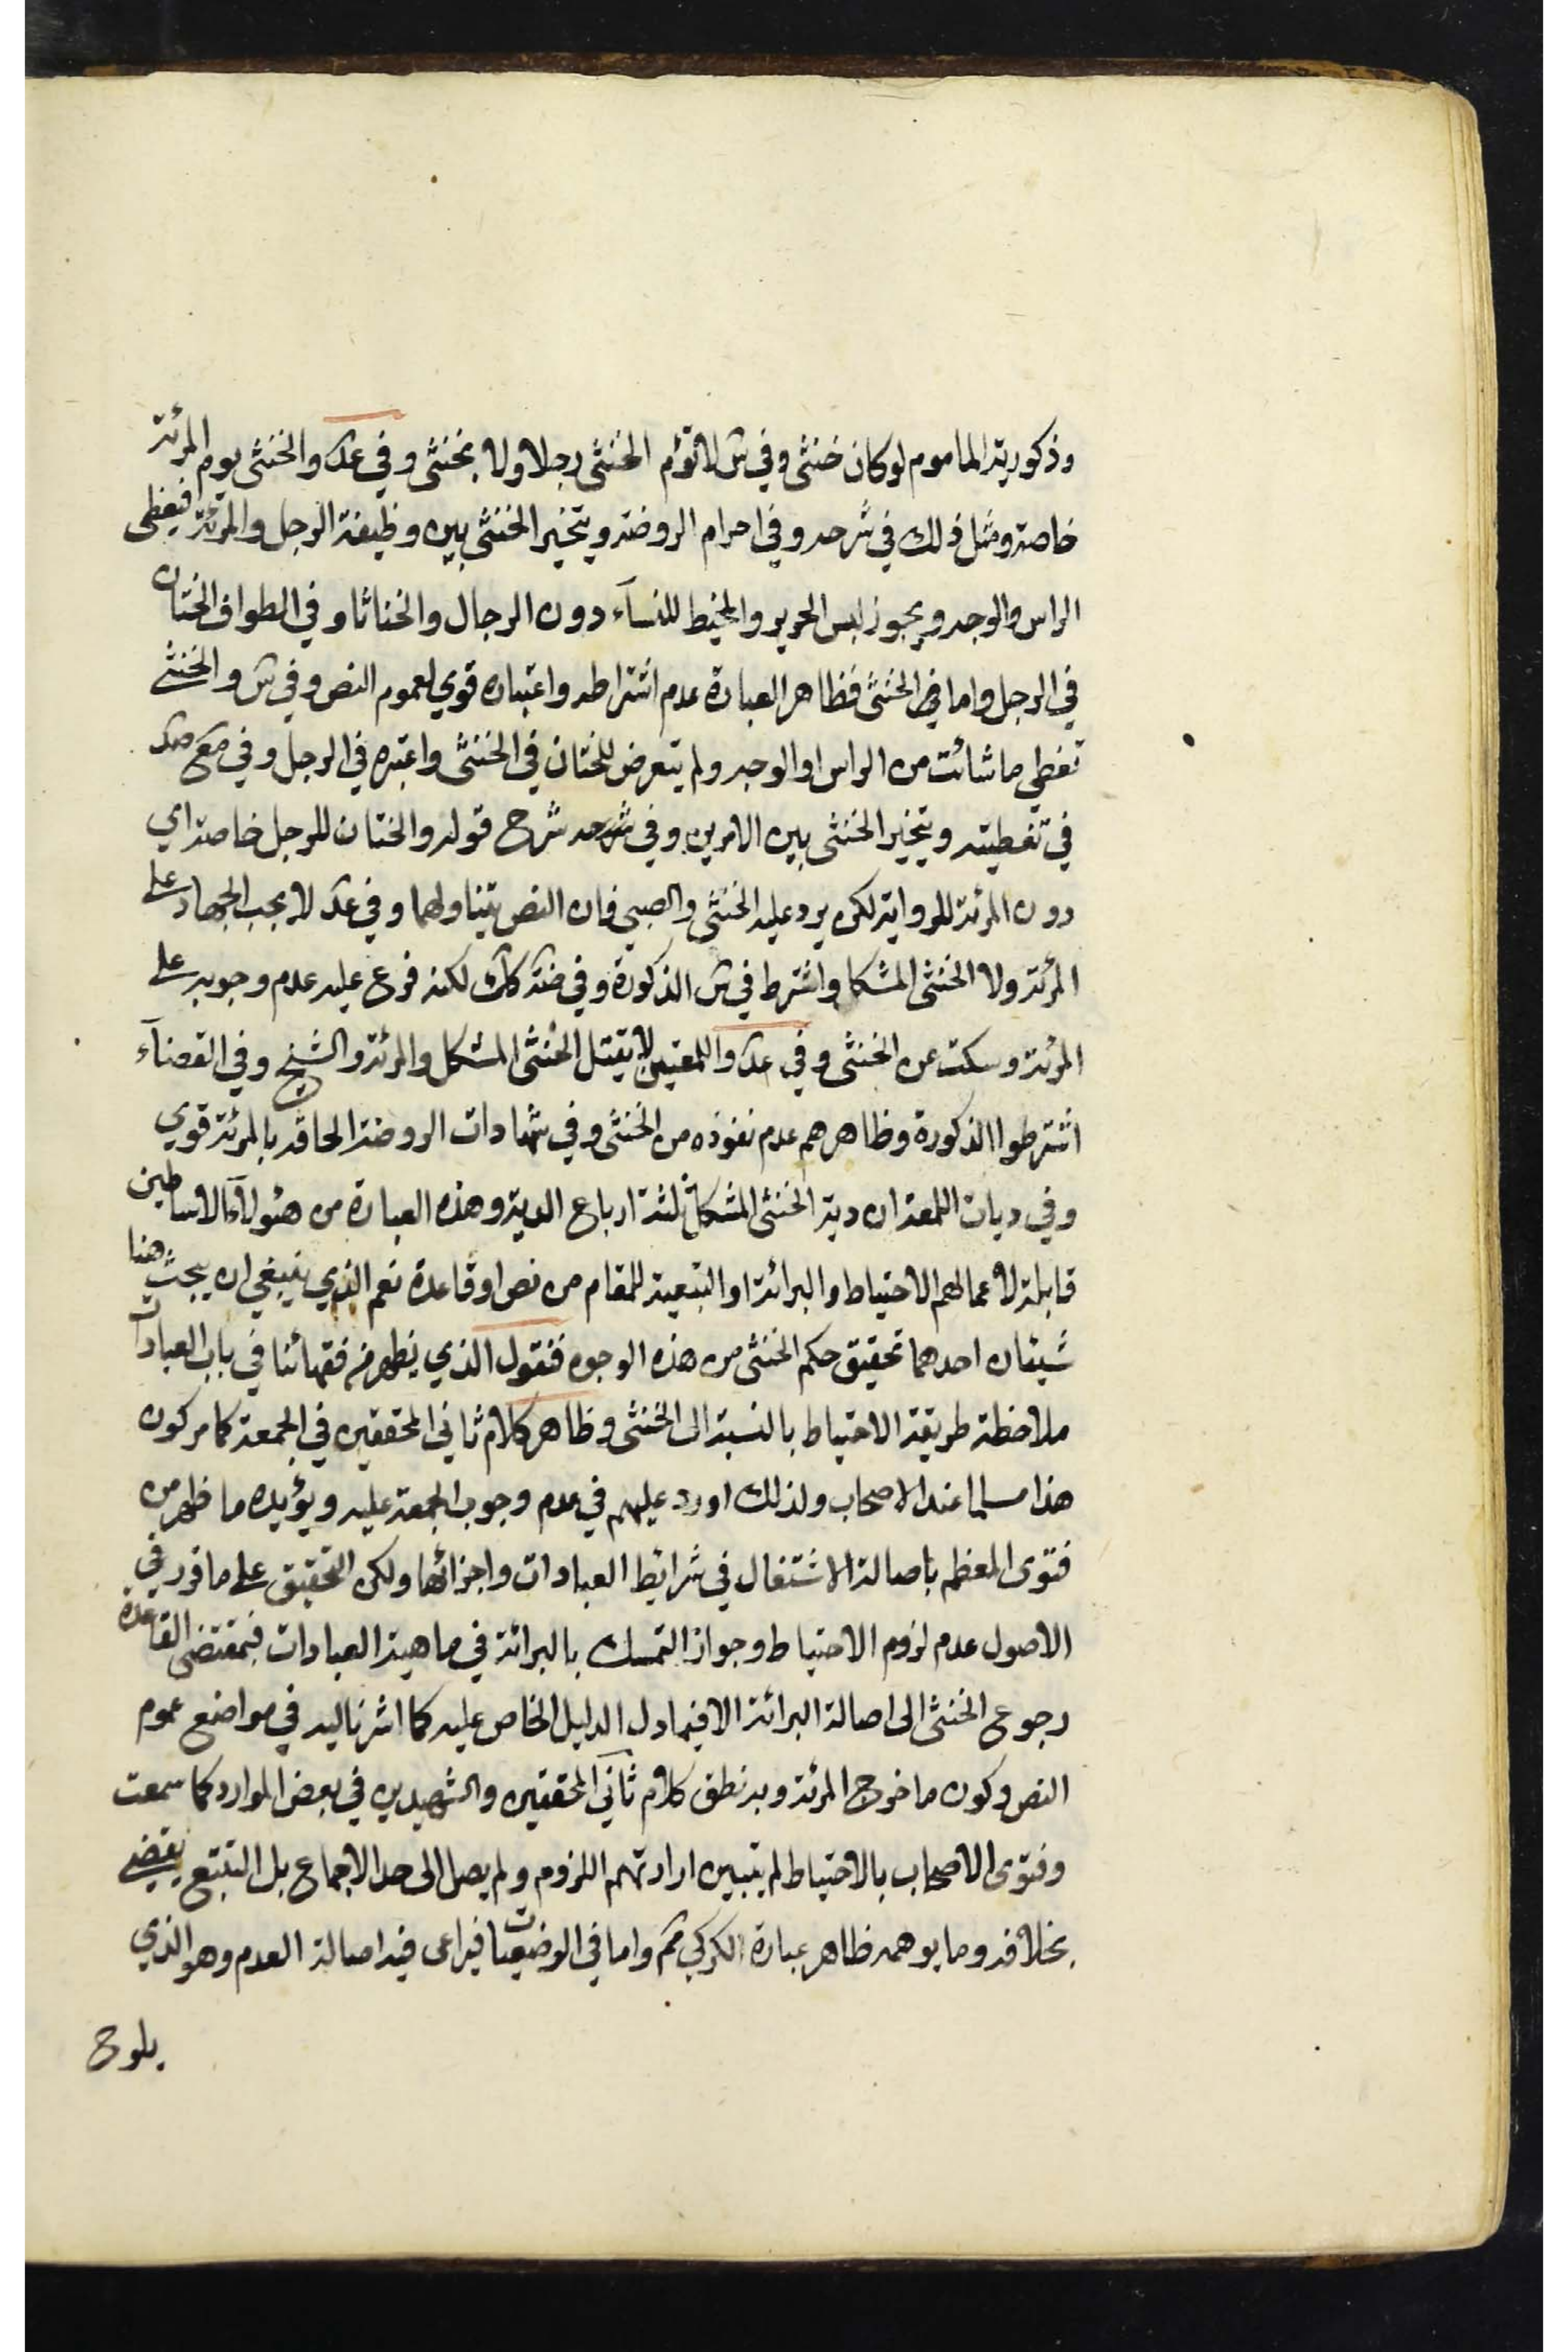 وذكورية المأموم لو كان خنثى وفي س لا تؤم الخنثى رجلا ولا بخنثى وفي عد والخنثى يوم المرئة
خاصة ومثل ذلك في شرحه وفي احرام الروضة ويتخير الخنثى بين وظيفة الرجل والمرئة فيغطى
الراس والوجه ويجوز لبس الحرير والمخيط للنسآء دون الرجال والخناثا وفي الطواف الختان
في الرجل واما في الخنثى فظاهر العبارة عدم اشتراطه واعتباره قوي لعموم النص وفي س والخنثى
تغطي ما شائت من الراس او الوجه ولم يتعرض للختان في الخنثى واعتبره في الرجل وفي
في تغطيته ويتخير الخنثى بين الامرين وفي شرحه شرح قوله والختان للرجل خاصة اي
دون المرئة للرواية لكن يرد عليه الخنثى والصبي فان النص يتناولهما وفي عد لا يجب الجهاد على
المرئة ولا الخنثى المشكل واشترط في س الذكورة وفي ضة كك لكنه فرع عليه عدم وجوبه على
المرئة وسكت عن الخنثى وفي عد واللمعتين لا يقتل الخنثى المشكل والمرئة والشيخ وفي القضآء
اشترطوا الذكورة وظاهرهم عدم نفوذه من الخنثى وفي شهادات الروضة الحاقه بالمرئة قوي
وفي ديات اللمعة ان دية الخنثى المشكل ثلثة ارباع الدية وهذه العبارة من هؤلآء الاساطين
قابلة لاعمالهم الاحتياط والبرائة او التبعية للمقام من نص او قاعدة نعم الذي ينبغي ان يبحث هنا
شيئان احدهما تحقيق حكم الخنثى من هذه الوجوه فنقول الذي يظهر من فقهائنا في باب العبادات
ملاحظة طريقة الاحتياط بالنسبة الى الخنثى وظاهر كلام ثاني المحققين في الجمعة كما مر كون
هذا مسلما عند الاصحاب ولذلك اورد عليهم في عدم وجوب الجمعة عليه ويؤيده ما ظهر من
فتوى المعظم باصالة الاشتغال في شرائط العبادات واجزائها ولكن التحقيق على ما قرر في
الاصول عدم لزوم الاحتياط وجواز التمسك بالبرائة في ماهية العبادات فبمقتضى القاعدة
رجوع الخنثى الى اصالة البرائة الا فيما دل الدليل الخاص عليه كما اشرنا اليه في مواضع عموم
النص وكون ما خرج المرئة وبه نطق كلام ثاني المحققين والشهيدين في بعض الموارد كما سمعت
وفتوى الاصحاب بالاحتياط لم يتبين ارادتهم اللزوم ولم يصل الى حد الاجماع بل التتبع يقضي
بخلافه وما يوهمه ظاهر عبارة الكركي مم واما في الوضعيات فيراعى فيه اصالة العدم وهو الذي
يلوح